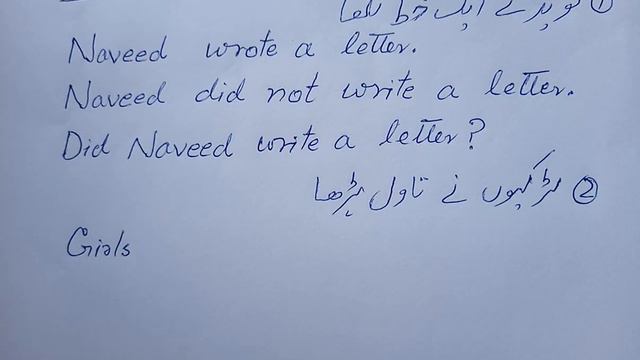 ① نوید نے ایک خط لکھا
Naveed wrote a letter.
Naveed did not write a letter.
Did Naveed write a letter?
② لڑکیوں نے ناول پڑھا
Girls